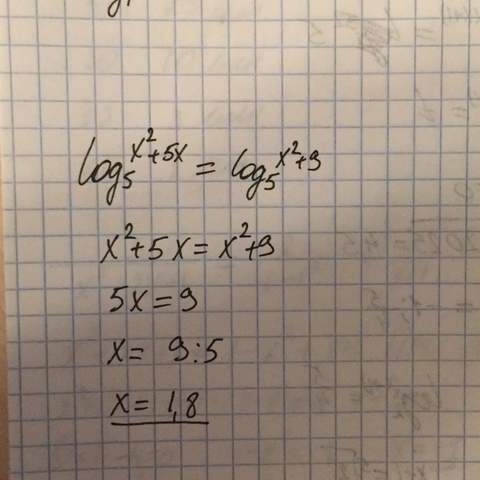 log₅ x²+5x = log₅ x²+9
x²+5x = x²+9
5x = 9
x = 9:5
x = 1,8